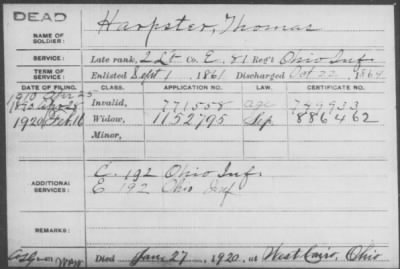 DEAD
NAME OF SOLDIER: Harpster, Thomas
SERVICE: Late rank, 2 Lt Co. E, 81 Reg't Ohio Inf.
TERM OF SERVICE: Enlisted Sept 1, 1861 Discharged Oct 22, 1864
DATE OF FILING. CLASS. APPLICATION NO. LAW. CERTIFICATE NO.
Invalid, 771558 age 749933
1920 Feb 16 Widow, 1152795 Sep. 886462
Minor,
ADDITIONAL SERVICES: C. 192 Ohio Inf.
E 192 Ohio Inf
REMARKS:
Died June 27, 1920, at West Cairo, Ohio